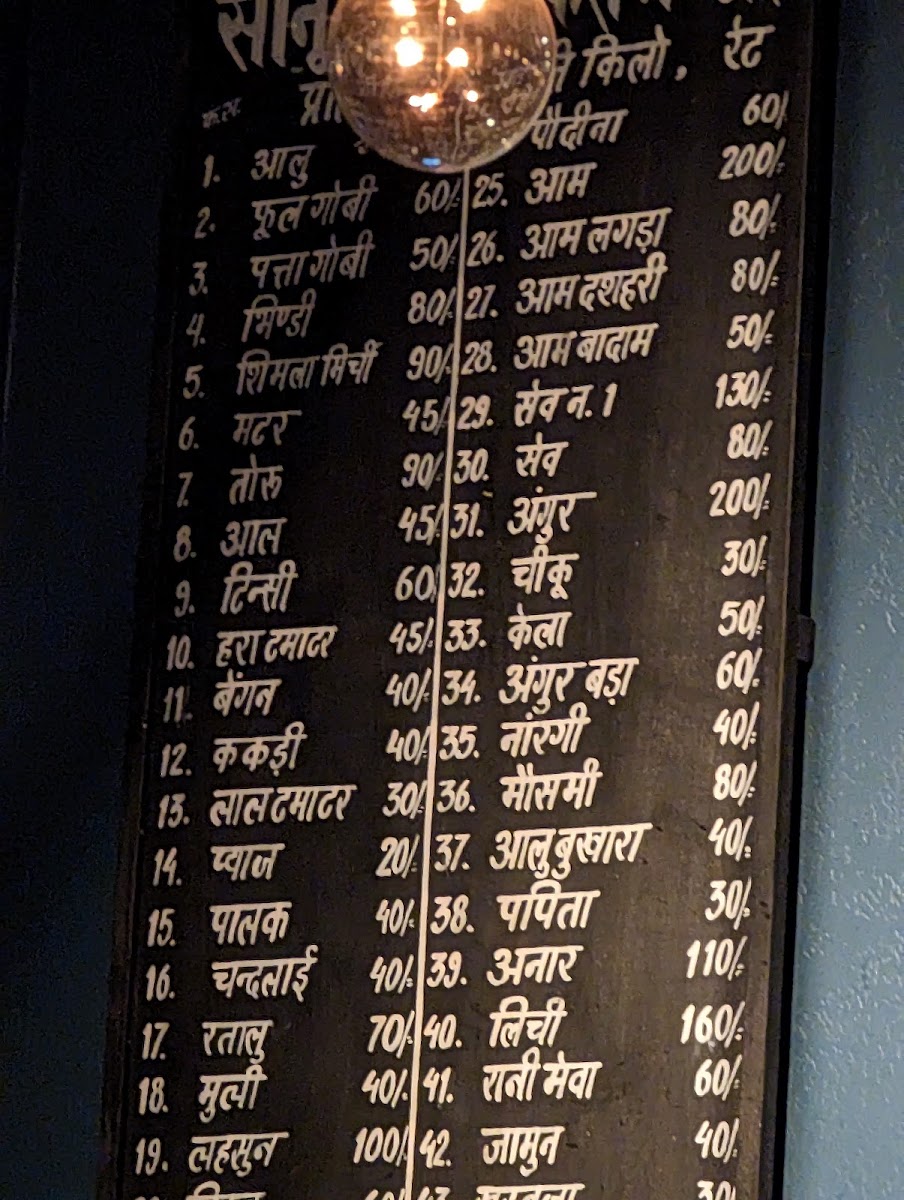 किलो, रेट
1. आलु
2. फूल गोबी 60/-
3. पत्ता गोबी 50/-
4. भिण्डी 80/-
5. शिमला मिर्ची 90/-
6. मटर 45/-
7. तोरू 90/-
8. आल 45/-
9. टिन्सी 60/
10. हरा टमाटर 45/-
11. बेंगन 40/-
12. ककड़ी 40/-
13. लाल टमाटर 30/-
14. प्याज 20/-
15. पालक 40/-
16. चन्दलाई 40/-
17. रतालु 70/-
18. मुली 40/-
19. लहसुन 100/-
पौदीना 60/-
25. आम 200/-
26. आम लगड़ा 80/-
27. आम दशहरी 80/-
28. आम बादाम 50/-
29. सेव न. 1 130/-
30. सेव 80/-
31. अंगुर 200/-
32. चीकू 30/-
33. केला 50/-
34. अंगुर बड़ा 60/-
35. नांरगी 40/-
36. मौसमी 80/-
37. आलुबुखारा 40/-
38. पपिता 30/-
39. अनार 110/-
40. लिची 160/-
41. रानी मेवा 60/-
42. जामुन 40/-